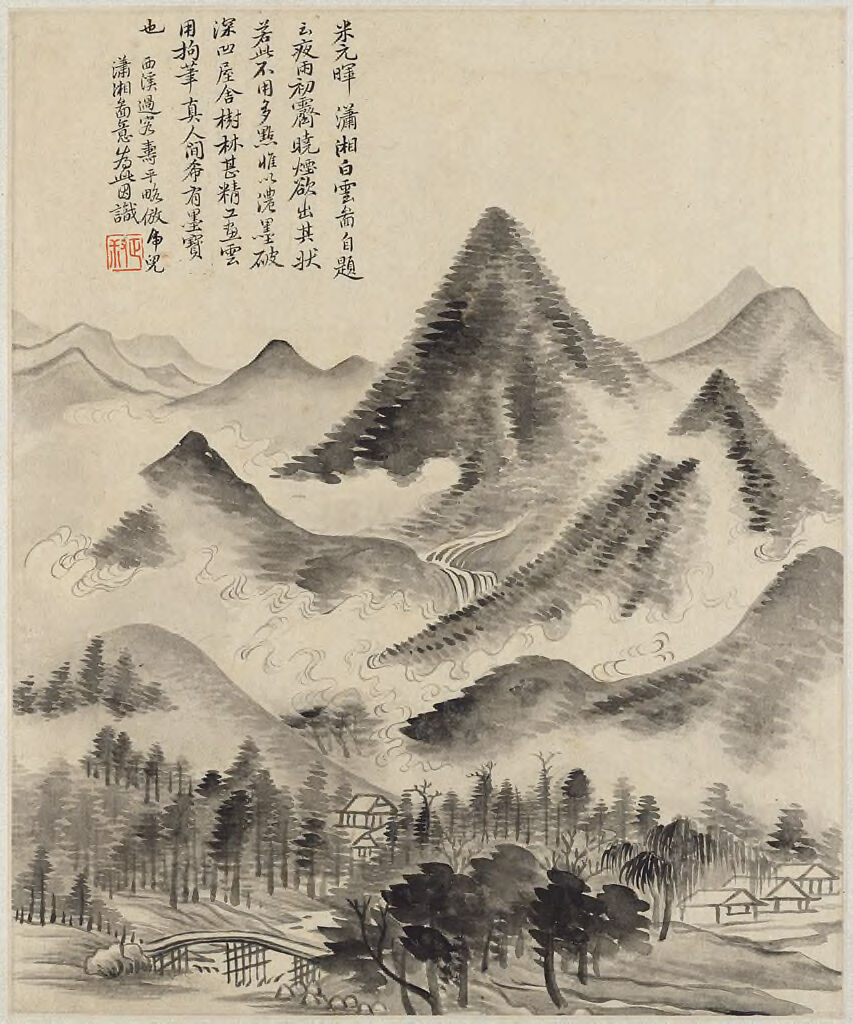 米元暉 瀟湘白雲啚自題
云夜雨初霽曉煙欲出其狀
若此不用多點惟以濃墨破
深凹屋舍樹林甚精工畫雲
用拘筆真人间希有墨寶
也
西溪過客壽平略倣虎兒
瀟湘啚意為此因識
正叔